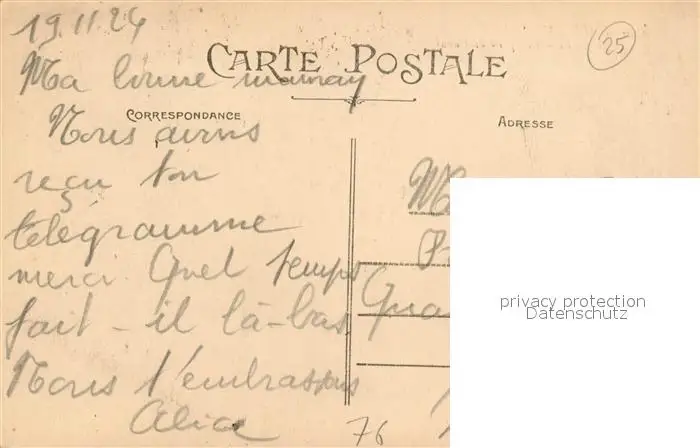 19.11.24
25
CARTE POSTALE
Ma bonne maman
CORRESPONDANCE
ADRESSE
Nous avons
reçu ton
télégramme
merci. Quel temps
fait-il là-bas.
Nous t'embrassons
Alice
76
privacy protection
Datenschutz